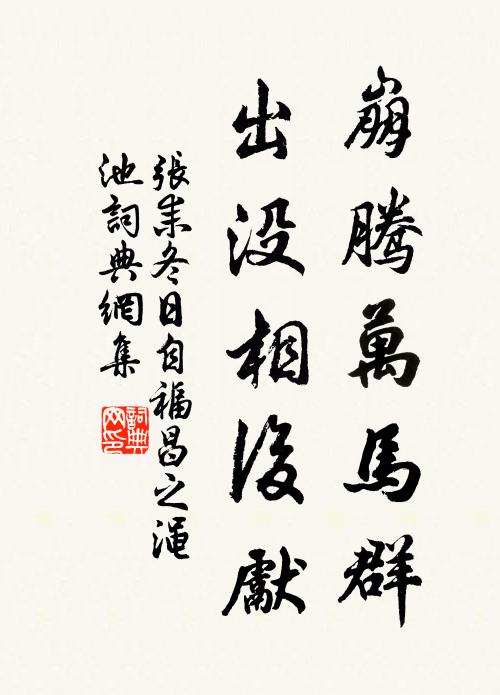 崩騰萬馬群
出沒相後獻
張耒冬日自福昌之澠
池詞典網集
詞典
网印